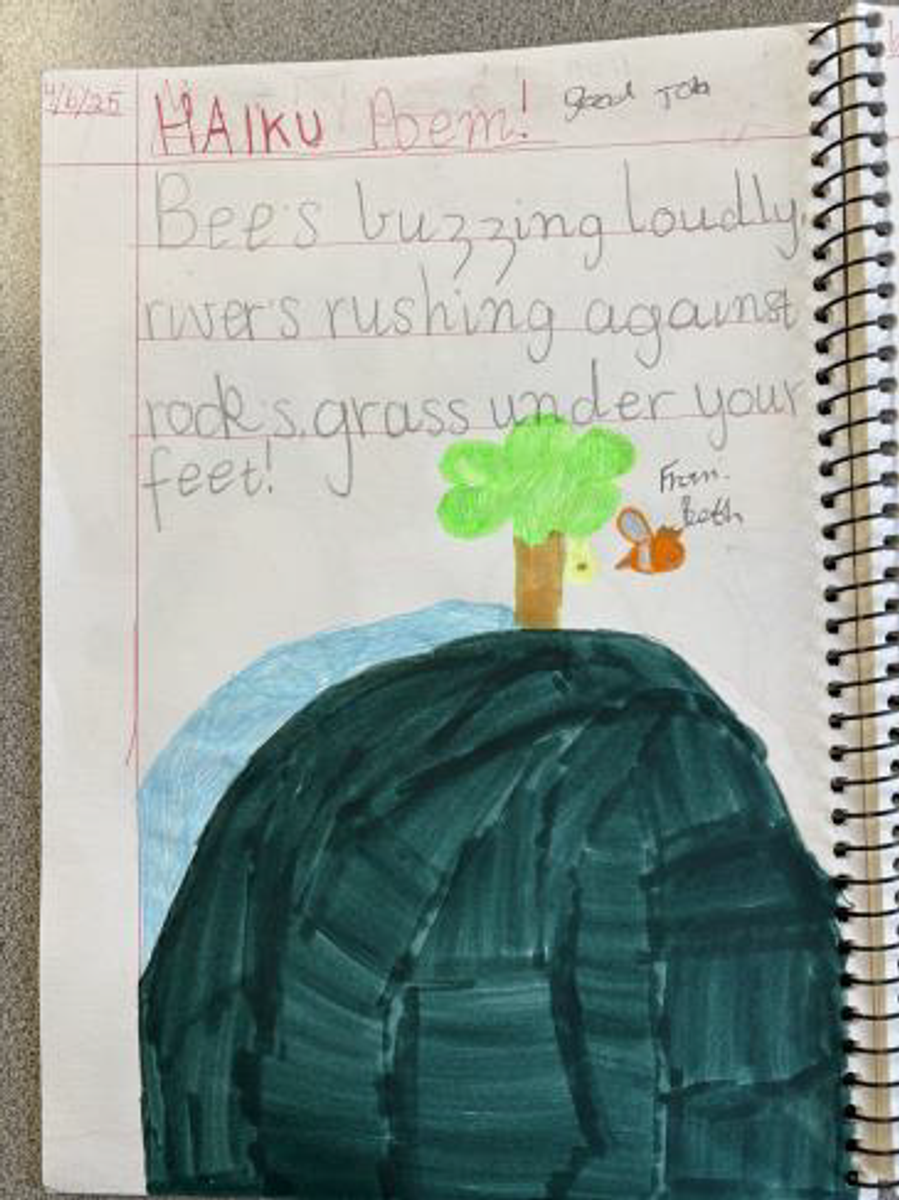 4/6/25
HAIKU Poem! good Job
Bee's buzzing loudly,
river's rushing against
rock's, grass under your
feet!
From.
Beth